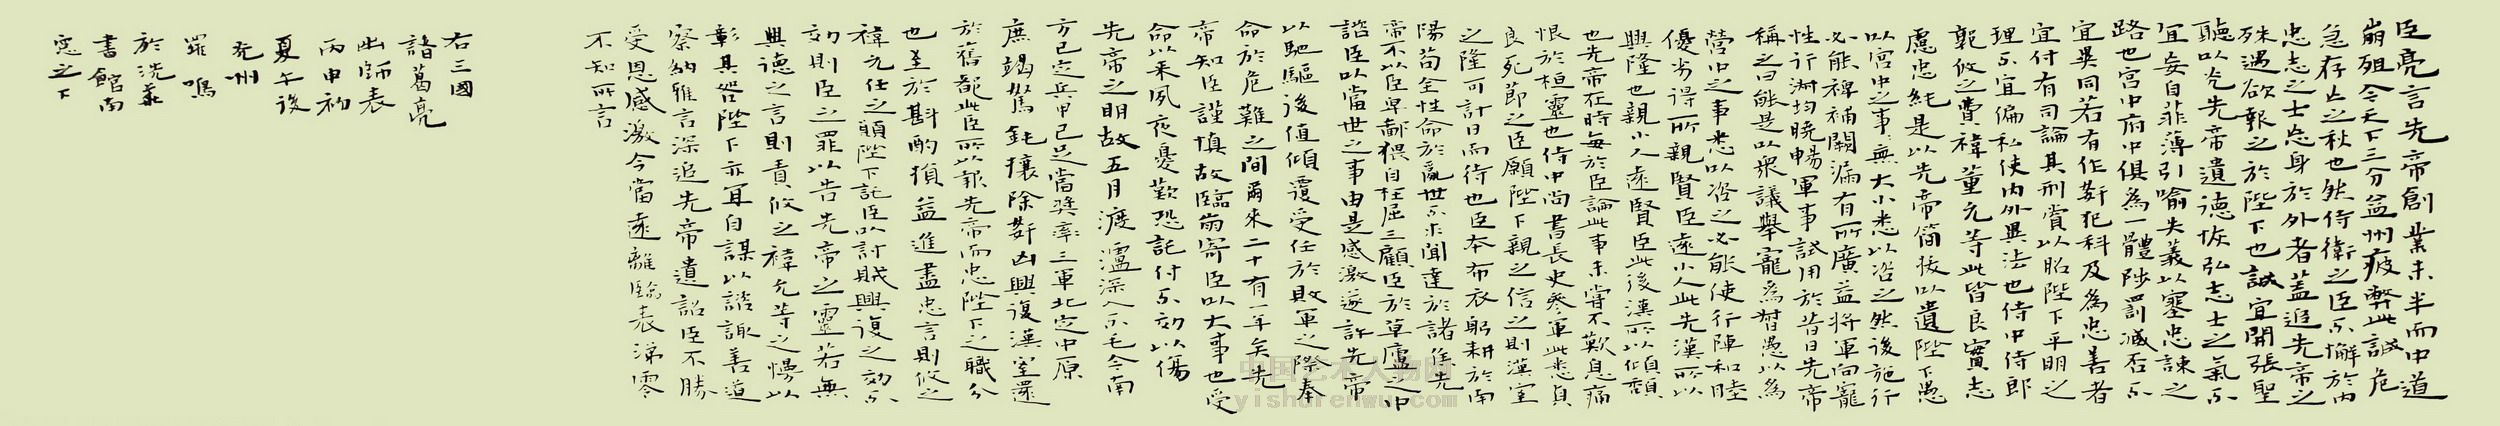 臣亮言先帝創業未半而中道
崩殂今天下三分益州疲弊此誠危
急存亡之秋也然侍衛之臣不懈於內
忠志之士忘身於外者蓋追先帝之
殊遇欲報之於陛下也誠宜開張聖
聽以光先帝遺德恢弘志士之氣不
宜妄自菲薄引喻失義以塞忠諫之
路也宮中府中俱為一體陟罰臧否不
宜異同若有作姧犯科及為忠善者
宜付有司論其刑賞以昭陛下平明之
理不宜偏私使內外異法也侍中侍郎
郭攸之費禕董允等此皆良實志
慮忠純是以先帝簡拔以遺陛下愚
以宮中之事無大小悉以咨之然後施行
必能裨補闕漏有所廣益將軍向寵
性行淑均曉暢軍事試用於昔日先帝
稱之曰能是以眾議舉寵為督愚以為
營中之事悉以咨之必能使行陣和睦
優劣得所親賢臣遠小人此先漢所以
興隆也親小人遠賢臣此後漢所以傾頹
也先帝在時每於臣論此事未嘗不歎息痛
恨於桓靈也侍中尚書長史參軍此悉貞
良死節之臣願陛下親之信之則漢室
之隆可計日而待也臣本布衣躬耕於南
陽苟全性命於亂世不求聞達於諸侯先
帝不以臣卑鄙猥自枉屈三顧臣於草廬之中
諮臣以當世之事由是感激遂許先帝
以馳驅後值傾覆受任於敗軍之際奉
命於危難之間爾來二十有一年矣先
帝知臣謹慎故臨崩寄臣以大事也受
命以來夙夜憂歎恐託付不効以傷
先帝之明故五月渡瀘深入不毛今南
方已定兵甲已足當獎率三軍北定中原
庶竭駑鈍攘除姧凶興復漢室還
於舊都此臣所以報先帝而忠陛下之職分
也至於斟酌損益進盡忠言則攸之
禕允任之願陛下託臣以討賊興復之効不
効則臣之罪以告先帝之靈若無
興德之言則責攸之禕允等之慢以
彰其咎陛下亦宜自謀以諮諏善道
察納雅言深追先帝遺詔臣不勝
受恩感激今當遠離臨表涕零
不知所言
右三國
諸葛亮
出師表
丙申初
夏午後
兗州
羅鳴
於洗
書館南
窓之下
中国艺术人物网
yishurenwu.com